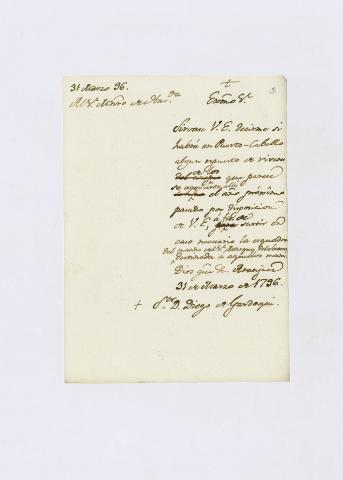 31 Marzo 96.
Al Sr. Mnro de Hac.da
Exmo Sr.
Sirvase V. E. decirme si
habrá en Puerto-Cabello
algun repuesto de viveres
de los
que parece
se acopiaron alli
el año próximo
pasado por disposicion
de V. E., á fin de
surtir en
caso necesario la esquadra
del mando del Sr.
destinada á aquellos mares.
Dios gue. &c. Aranjuez
31 de Marzo de 1796.
Sor. D. Diego de Gardoqui.